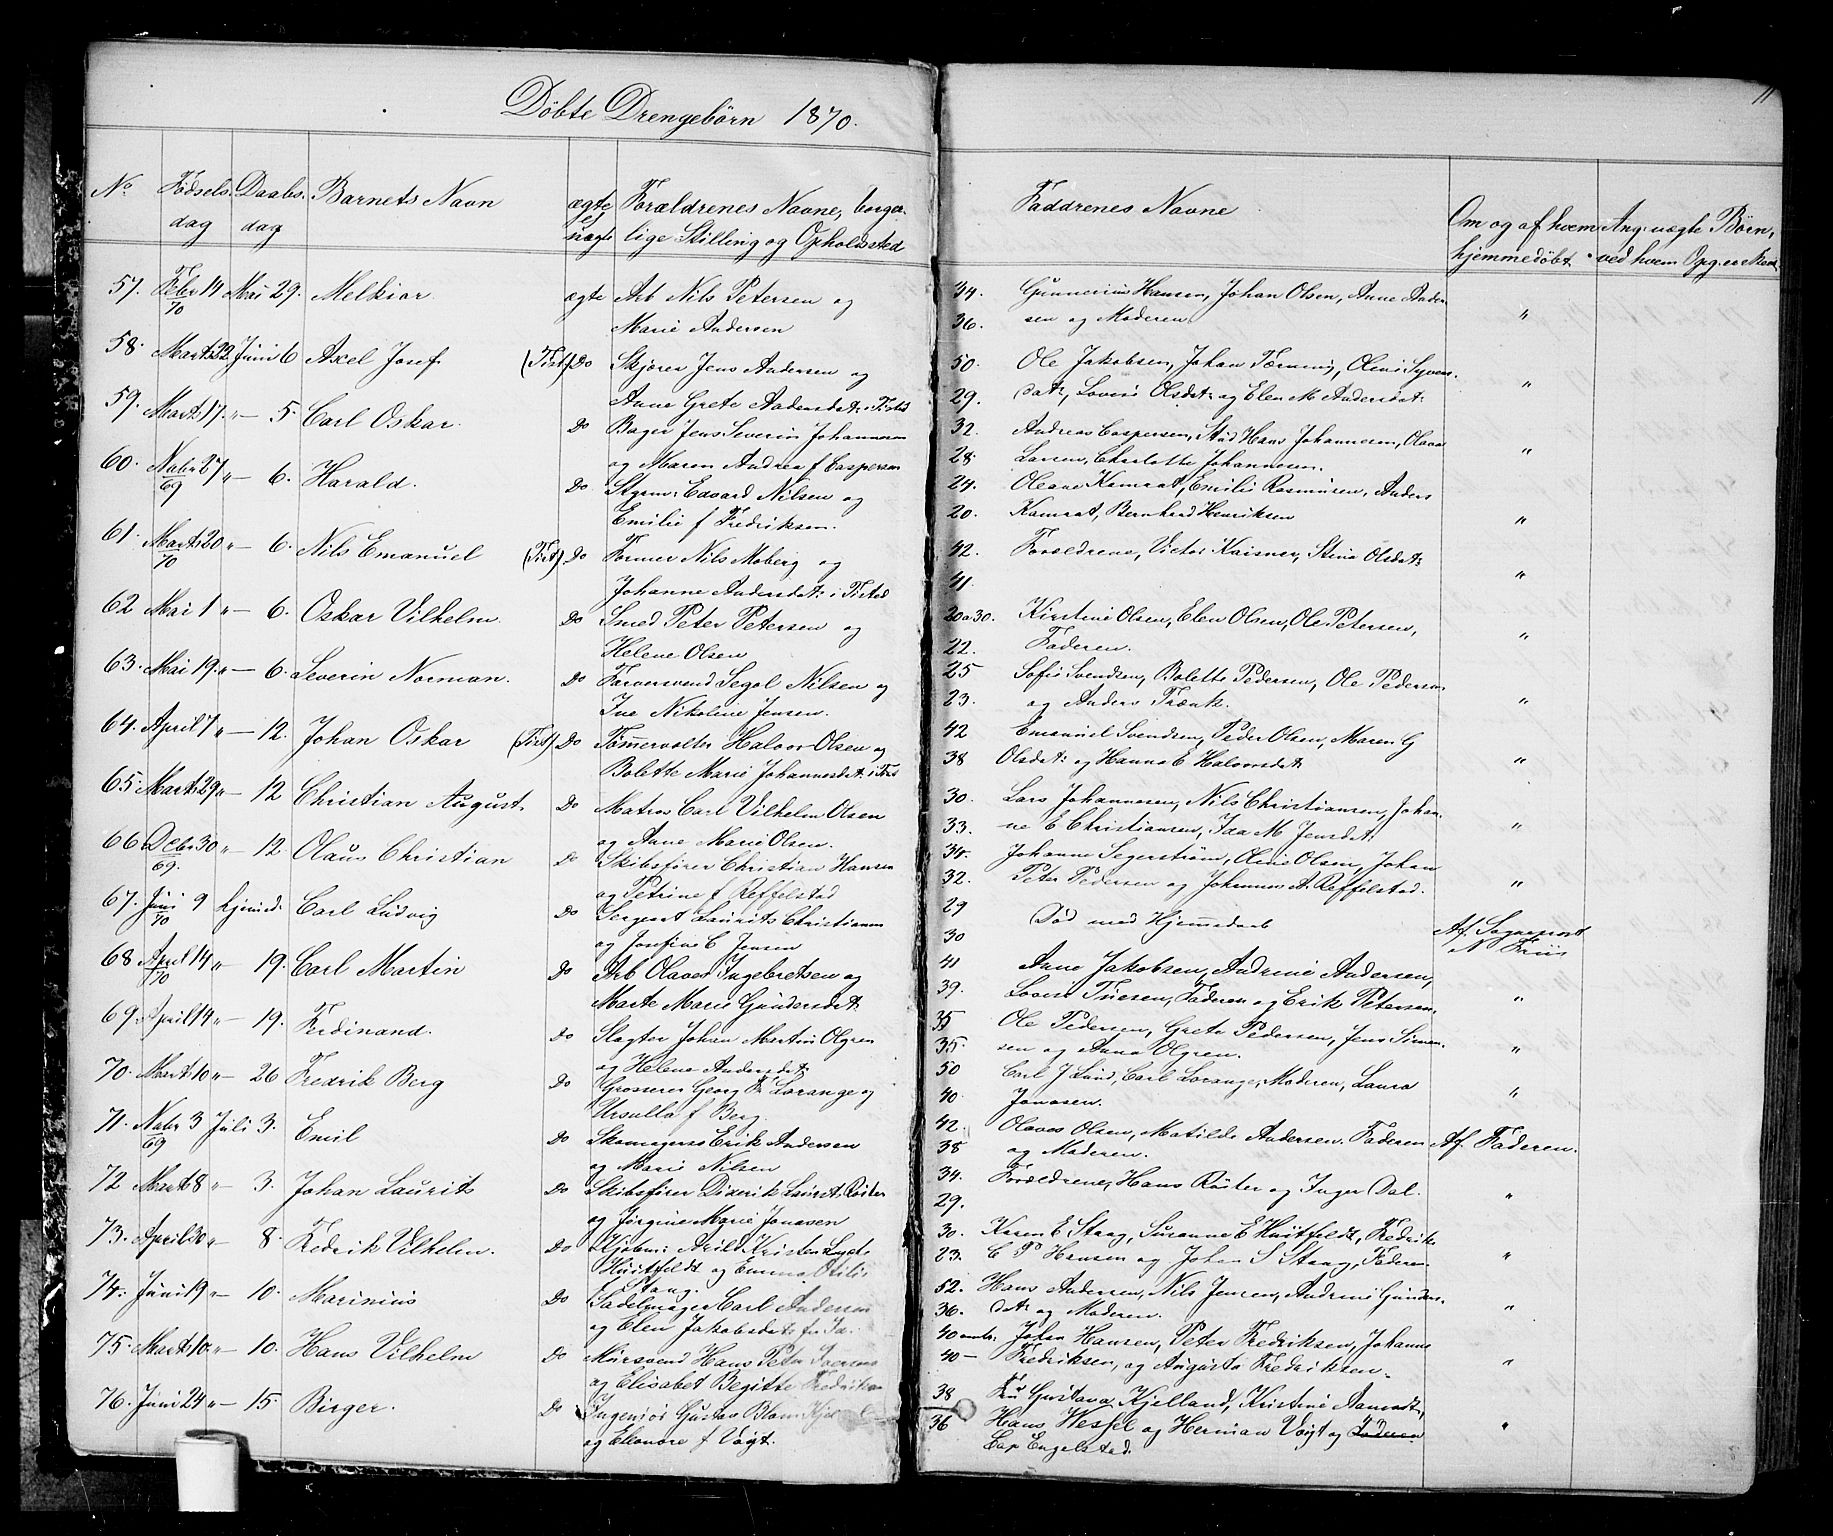 Döbte Drengebörn 1870.
11
No Födsels dag Daabs dag Barnets Navn ægte el uægte Forældrenes Navne, borgerlige Stilling og Opholdssted Faddrenes Navne Om og af hvem hjemmedöbt Ang: uægte Børn, ved hvem Opg. er
57. Febr 14 70 Mai 29. Melkior. ægte Arb Nils Petersen og 34. Gunnerius Hansen, Johan Olsen, Anne Ander-
Marie Andersen 36. sen og Moderen. "
58. Marts 22 Juni 6 Axel Josef. (Tist) Do Skjörer Jens Andersen og 50. Ole Jakobsen, Johan Olini Syvers-
Anne Grete Andersdat: i Tisted 29. dat:, Lovise Olsdat: og Elen M. Andersdat: "
59. Marts 17. " — 5. Carl Oskar. Do Bager Jens Severin Johannesen 32. Andreas Caspersen, Stud Hans Johannesen, Olava
og Maren Andrea f Caspersen 28. Larsen, Charlotte Johannesen. "
60. Novbr 27 69 " — 6. Harald. Do Styrm: Edvard Nilsen og 24. Oleane Kamraat, Emilie Rasmussen, Anders
Emilie f Fredriksen. 20. Kamraat, Bernhard Henriksen "
61. Marts 20 70 " — 6. Nils Emanuel (Tist). Do Former Nils Moberg og 42. Forældrene, Victor Kaisner, Stina Olsdat:
Johanne Andersdat: i Tisted 41. "
62 Mai 1 " — 6. Oskar Vilhelm. Do Smed Peter Petersen og 20a30. Kirstine Olsen, Elen Olsen, Ole Petersen,
Helene Olsen 22. Faderen. "
63. Mai 19. " — 6. Severin Norman. Do Farversvend Segol Nilsen og 25 Sofie Svendsen, Bolette Pedersen, Ole Pedersen
Ine Nikoline Jensen. 23. og Anders Frænk. "
64. April 7 " — 12. Johan Oskar (Tist) Do Tömmervalter Halvor Olsen og 42 Emanuel Svendsen, Peder Olsen, Maren G
Bolette Marie Johannesdat: i Tist 38 Olsdat: og Hanna E Halvorsdat: "
65. Marts 29 " — 12 Christian August. Do Matros Carl Vilhelm Olsen 30. Lars Johannesen, Nils Christiansen, Johan-
og Anne Marie Olsen. 33. ne E Christiansen, Ida M Jensdat: "
66 Decbr 30 69. " — 12. Olaus Christian Do Skibsförer Christian Hansen 34. Johanne Segerström, Olini Olsen, Johan
og Petrine f Reffelstad 32. Peter Pedersen og Johannes A. Reffelstad. "
67. Juni 9 70 hjemmed. Carl Ludvig Do Sergeant Laurits Christiansen 29 Död med Hjemmedaab Af Sogneprest
og Josefine C Jensen 30 N. Friis
68 April 14 70 " — 19. Carl Martin Do Arb Olaves Ingebretsen og 41 Anne Jakobsen, Andrine Andersen,
Marte Marie Gundersdat: 39. Lovise Faderen og Erik Petersen. "
69. April 14 " — 19. Ferdinand. Do Slagter Johan Martin Olgren 35 Ole Pedersen, Grete Pedersen, Jens Simon-
og Helene Andersdat: 35. sen og Anna Olgren. "
70. Marts 10 " — 26 Fredrik Berg Do Grosserer Georg Fr Lorange og 50 Carl J Lund, Carl Lorange, Moderen, Laura
Ursulla f Berg. 40. Jonasen. "
71. Novbr 3 69 Juli 3. Emil Do Skomagersv Erik Andersen 42. Olaves Olsen, Matilde Andersen, Faderen Af Faderen.
og Marie Nilsen 38 og Moderen.
72 Marts 8 " — 3. Johan Laurits Do Skibsförer Diderik Laurit. Röster 34. Forældrene, Hans Röster og Inger Dal.
og Jörgine Marie Jonasen 29. "
73. April 30 " — 8. Fredrik Vilhelm. Do Kjöbm: Arild Kristen 30. Karen E Stang, Susanne E Huitfeldt, Fredrik
Huitfeldt og Emma Otilie 23. C P Hansen og Johan S Stang, Faderen. "
f Stang.
74. Juni 19 " — 10. Marinius Do Sadelmager Carl Andersen 52. Hans Andersen, Nils Jensen, Andrine Gunders-
og Elen Jakobsdat: fr Id. 36. dat: og Moderen. "
75. Marts 10. " — 10. Hans Vilhelm Do Mursvend Hans Peter 40 omtr. Johan Hansen, Peter Fredriksen, Johanne
og Elisabet Begitte Fredriksen 40 — Fredriksen, og Augusta Fredriksen. "
76. Juni 24 " — 15. Birger. Do Ingeniör Gustav Blom 38 Fru Gustava Kjelland, Kristine Aamodt,
og Elleonore f Vogt. 36 Hans Wessel og Herman Vogt og Faderen "
Cap Engelstad.